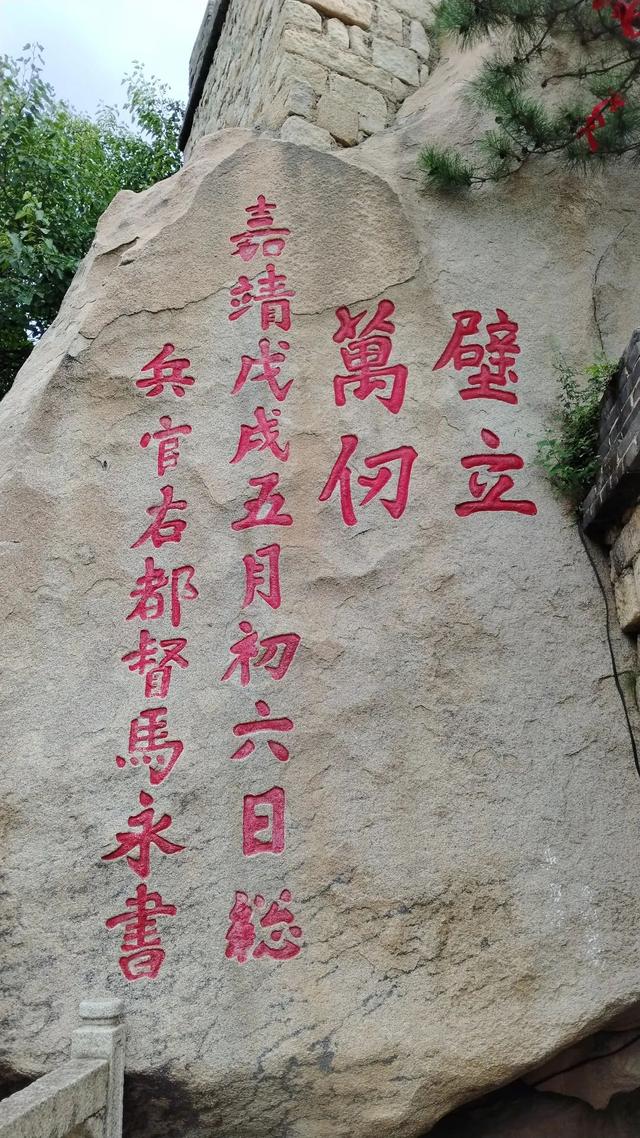 壁立
萬仞
嘉靖戊戌五月初六日総
兵官右都督馬永書